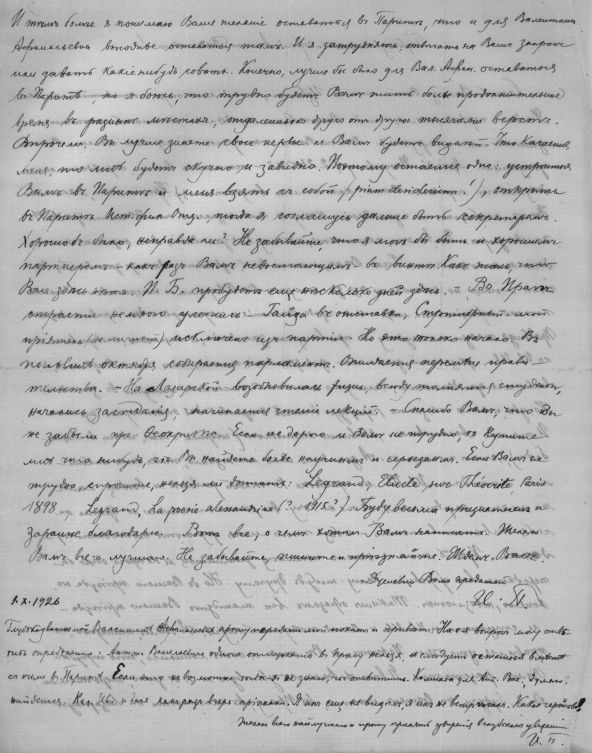 И тѣмъ болѣе я понимаю Ваше желаніе оставаться въ Парижѣ, что и для Валентины
Афанасьевны выгоднѣе оставаться тамъ. И я затрудняюсь отвѣтить на Вашъ запросъ
или давать какіе нибудь совѣты. Конечно, лучше бы было для Вал. Афан. оставаться
въ Парижѣ, но я боюсь, что трудно будетъ Вамъ жить болѣе продолжительное
время въ разныхъ мѣстахъ, отдаленныхъ другъ отъ друга тысячами верстъ.
Впрочемъ, Вы лучше знаете свои нервы и Вамъ будетъ виднѣе. Что касается
меня, то мнѣ будетъ скучно и завидно. Поэтому остается одно: устроиться
Вамъ въ Парижѣ и меня взять съ собой, открыть
въ Парижѣ Ист.-фил. Отд., тогда я соглашусь дальше быть секретаремъ.
Хорошо бъ было, неправда ли? Не забывайте что я могъ бы быть и хорошимъ
партнеромъ – какъ разъ Вамъ недостающимъ – въ винтъ. Какъ жаль, что
Васъ здѣсь нѣтъ. П. Б. пробудетъ еще нѣсколько дней здѣсь. – Въ Прагѣ
страсти немного улеглись. – Гайда въ отставкѣ, Стршибрный – мой
пріятель (не личный) исключенъ изъ партіи. Но это только начало. Въ
половинѣ октября собирается парламентъ. Ожидается перемѣна прави
тельства. – На возобновилась жизнь, всюду толпятся студенты,
начались засѣданія, начинается чтеніе лекцій. – Спасибо Вамъ, что Вы
не забыли про Ѳеокрита. Если не дорого и Вамъ не трудно, то купите
мнѣ что нибудь, что Вы найдете болѣе научнымъ и серьезнымъ. Если Вамъ не
трудно, спросите, нельзя ли достать: Legrand, Etude sur Théocrite, Paris
1898, Legrand, La poesie alexandrine (? 1915?) Буду весьма признателенъ и
заранѣе благодаренъ. Вотъ все, о чемъ хотѣлъ Вамъ написать. Желаю
Вамъ всего лучшаго. Не забывайте, пишите и пріѣзжайте. Ждемъ Васъ.
Душевно Вамъ преданный
1.X.1926
Глубокоуважаемой Валентинѣ Афанасьевнѣ прошу передать мой поклонъ и привѣтъ. На этотъ вопросъ могу отвѣ
тить опредѣленно: Антона Васильевича одного отпускать въ Прагу нельзя, и слѣдуетъ остаться вмѣстѣ
съ нимъ въ Парижѣ. Если это невозможно, тогда я не знаю, что отвѣтить. Комната для Ант. Вас., думаю,
найдется. вчера пріѣхали. Я ихъ еще не видѣлъ, я ихъ не встрѣчалъ.
Желаю всего наилучшаго и прошу принять увѣренія въ глубокомъ уваженіи
И. П.